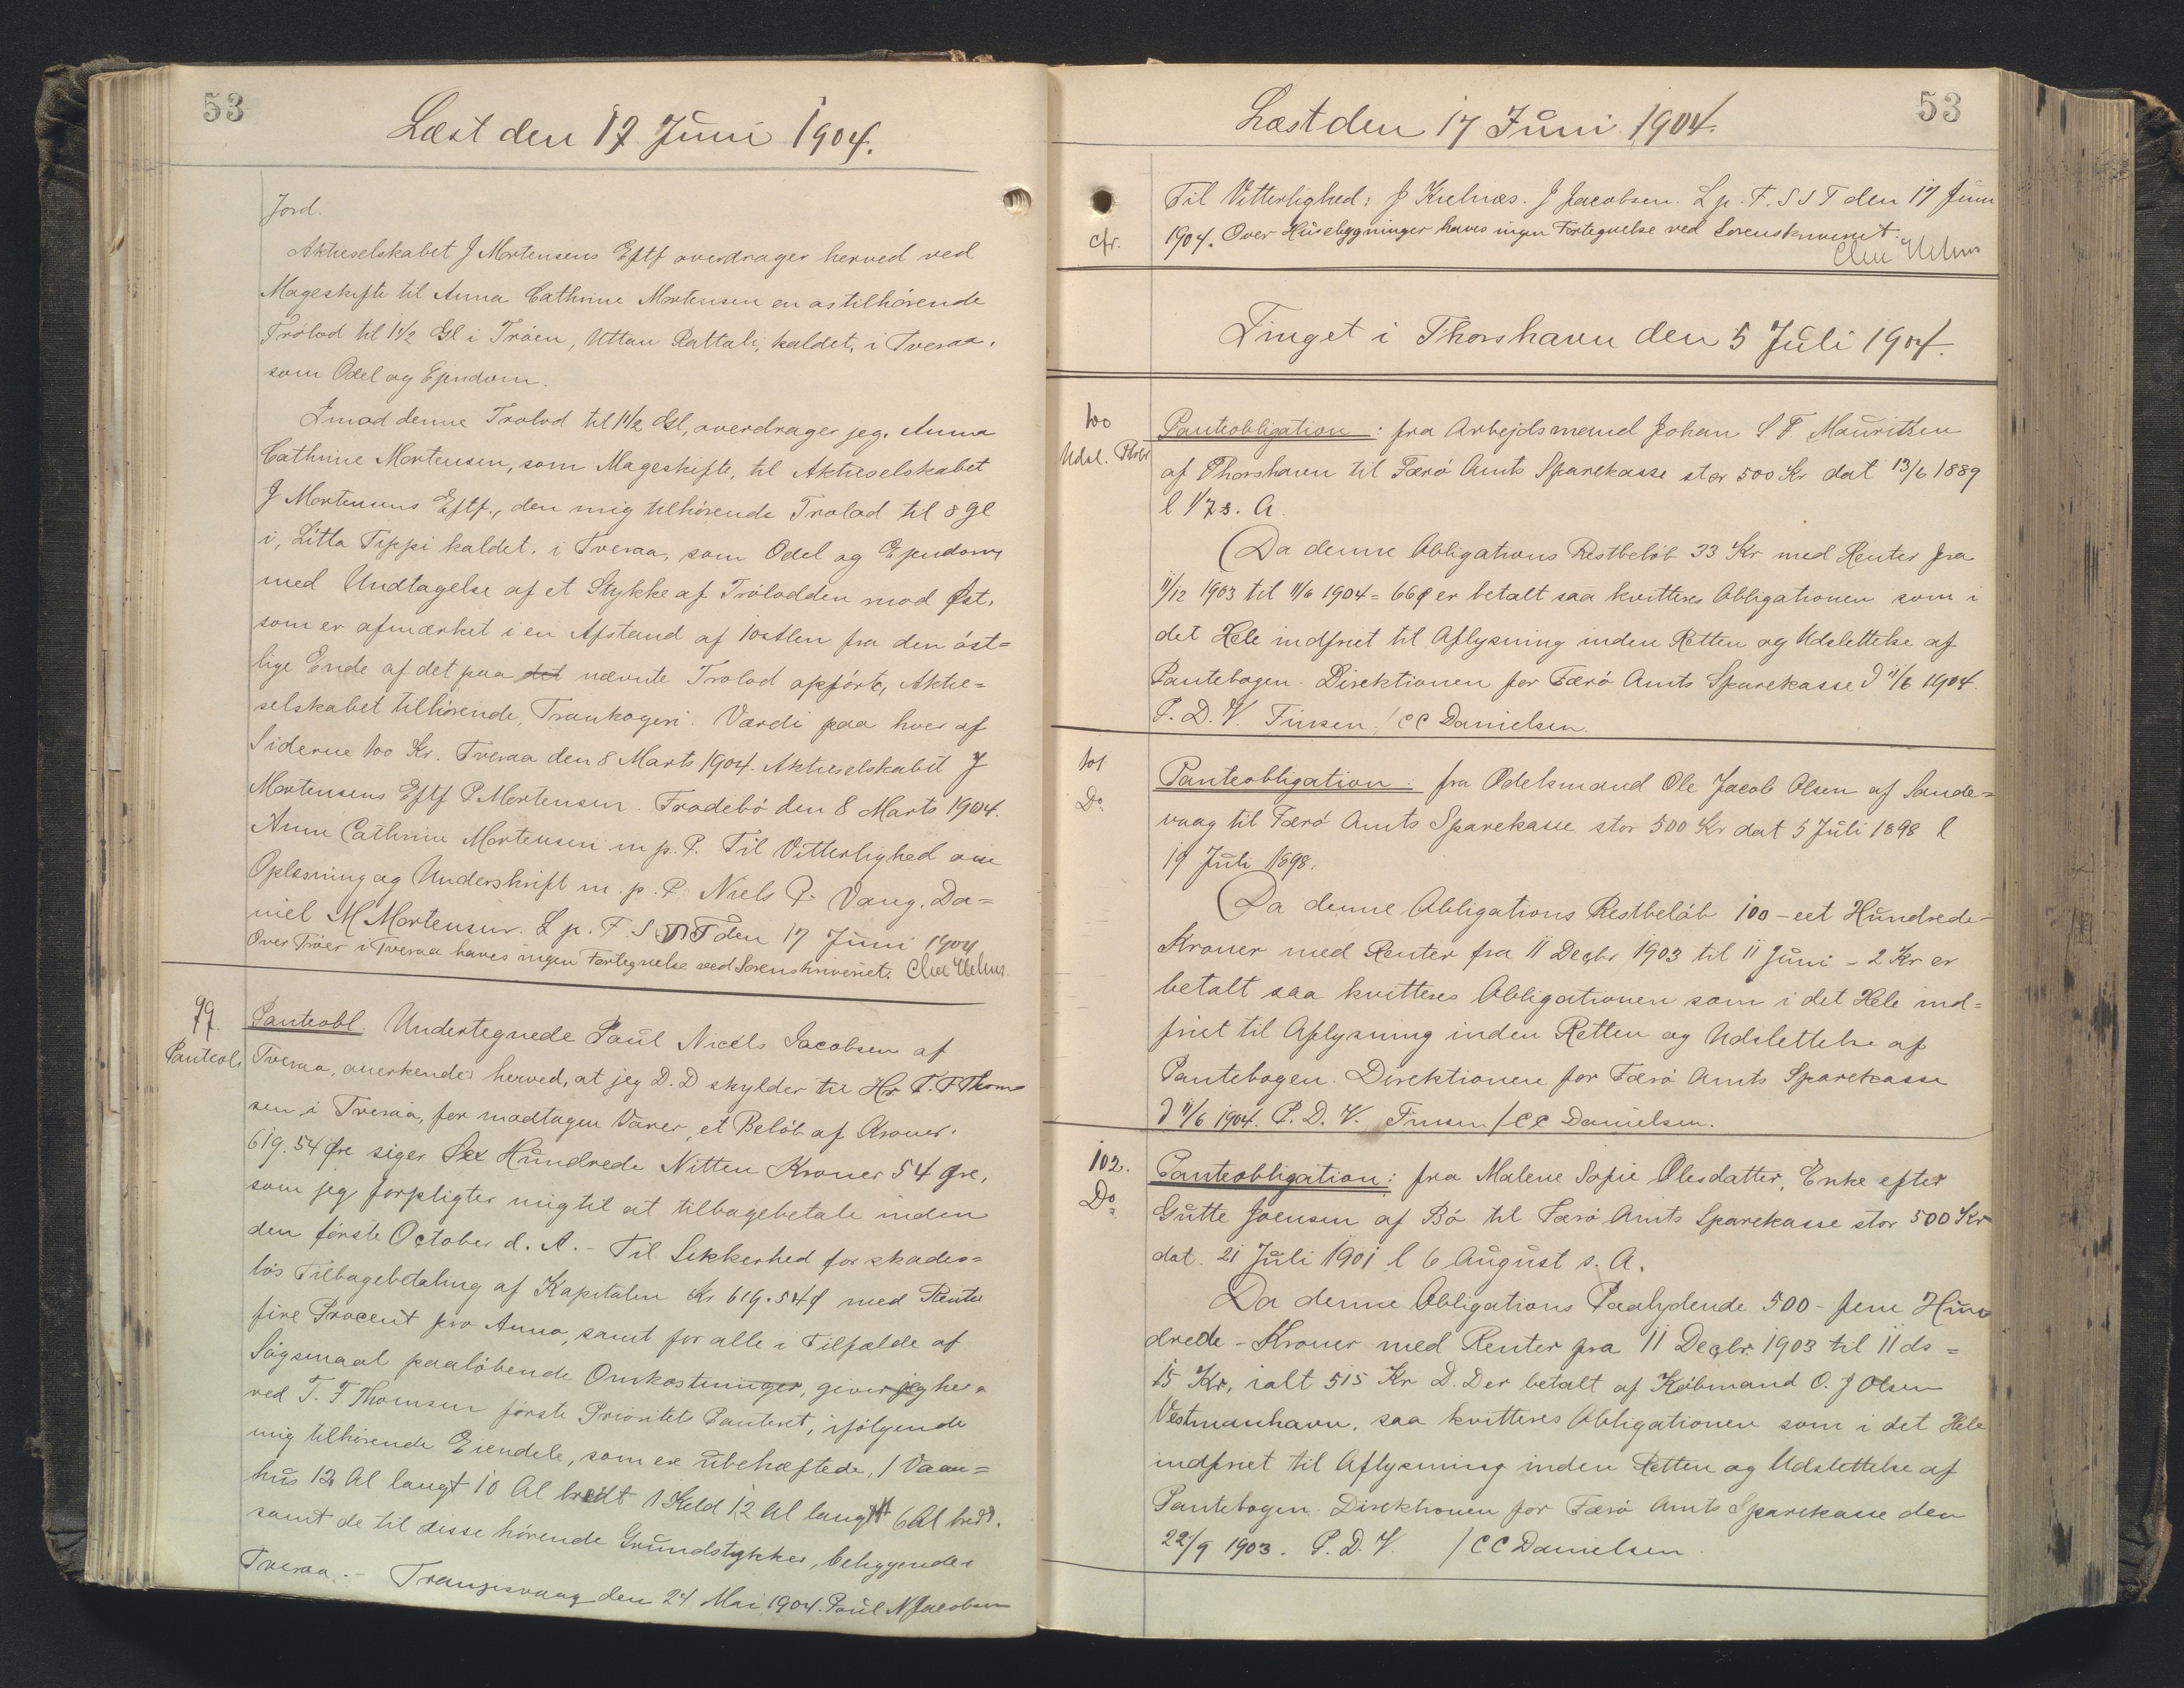 53
Læst den 17 Juni 1904.
Jord.
Aktieselskabet J Mortensens Eftf overdrager herved ved
Mageskifte til Anna Cathrine Mortensen en os tilhörende
Trölod til 1 1/2 Gl i Tröen, Uttan Rattali, kaldet, i Tveraa,
som Odel og Ejendom.
Imod denne Trolod til 1 1/2 Gl, overdrager jeg, Anna
Cathrine Mortensen, som Mageskifte, til Aktieselskabet
J Mortensens Eftf., den mig tilhörende Trolod til 8 Gl
i, Litla Tippi kaldet, i Tveraa, som Odel og Ejendom
med Undtagelse af et Stykke af Trölodden mod Øst,
som er afmærket i en Afstand af 10 Allen fra den öst=
lige Ende af det paa det nævnte Trolod opförte, Aktie=
selskabet tilhörende, Trankogeri. Værdi paa hver af
Siderne 100 Kr. Tveraa den 8 Marts 1904. Aktieselskabet J
Mortensens Eftf P Mortensen. Frodebö den 8 Marts 1904.
Anna Cathrine Mortensen m. p. P. Til Vitterlighed om
Oplæsning og Underskrift m. p. P. Niels P. Vang. Da=
niel M Mortensen. L p. F. S S T den 17 Juni 1904
Over Tröer i Tveraa haves ingen Fortegnelse ved Sorenskriveriet.
99 Panteobl. Undertegnede Paul Nicels Jacobsen af
Panteobl Tveraa, anerkender herved, at jeg D. D skylder til Hr. T. F Thom
sen i Tveraa, for modtagen Varer, et Belöb af Kroner.
619.54 Øre siger Sex Hundrede Nitten Kroner 54 Øre,
som jeg forpligter mig til at tilbagebetale inden
den förste October d. A. - Til Sikkerhed for skades=
lös Tilbagebetaling af Kapitalen Kr 619.54 Ø med Renter
fire Procent pro Anno, samt for alle i Tilfælde af
Sögsmaal paalöbende Omkostninger, giver jeg her=
ved T. F Thomsen förste Prioritets Panteret, i fölgende
mig tilhörende Eiendele, som ere übehæftede, 1 Vaan=
hus 12 Al langt 10 Al bredt 1 Keld 12 Al langt 6 Al bredt.
samt de til disse hörende Grundstykker, beliggende i
Tveraa. - Trangisvaag den 24 Mai 1904. Paul N Jacobsen
53
Læst den 17 Juni 1904.
Til Vitterlighed: J Kielnæs. J Jacobsen. L p. F. S S T den 17 Juni
cfr. 1904. Over Husebygninger haves ingen Fortegnelse ved Sorenskriveriet.
Tinget i Thorshavn den 5 Juli 1904.
100 Panteobligation: fra Arbejdsmand Johan S. F. Mauritsen
Udsl. af Thorshavn til Færö Amts Sparekasse stor 500 Kr dat 13/6 1889
l 1/7 s. A.
Da denne Obligations Restbelöb 33 Kr med Renter fra
11/12 1903 til 11/6 1904 = 66 Ø er betalt saa kvitteres Obligationen som i
det Hele indfriet til Aflysning inden Retten og Udslettelse af
Pantebogen. Direktionen for Færö Amts Sparekasse d 11/6 1904.
P. D. V. Finsen / CC Danielsen.
101 Panteobligation: fra Odelsmand Ole Jacob Olsen af Sande=
Do. vaag til Færö Amts Sparekasse stor 500 Kr dat 5 Juli 1898 l
19 Juli 1898.
Da denne Obligations Restbelöb 100 - eet Hundrede -
Kroner med Renter fra 11 Decbr 1903 til 11 Juni - 2 Kr er
betalt saa kvitteres Obligationen som i det Hele ind=
friet til Aflysning inden Retten og Udslettelse af
Pantebogen. Direktionen for Færö Amts Sparekasse
d 11/6 1904. P. D. V. Finsen / CC Danielsen.
102. Panteobligation: fra Malene Sofie Olesdatter, Enke efter
Do Gutte Joensen af Bö til Færö Amts Sparekasse stor 500 Kr
dat. 21 Juli 1901 l 6 August s. A.
Da denne Obligations Paalydende 500 - fem Hun
drede - Kroner med Renter fra 11 Decbr. 1903 til 11 ds =
15 Kr, ialt 515 Kr D. D er betalt af Köbmand O. J Olsen
Vestmanhavn, saa kvitteres Obligationen som i det Hele
indfriet til Aflysning inden Retten og Udslettelse af
Pantebogen. Direktionen for Færö Amts Sparekasse den
22/9 1903. P. D. V. / CC Danielsen